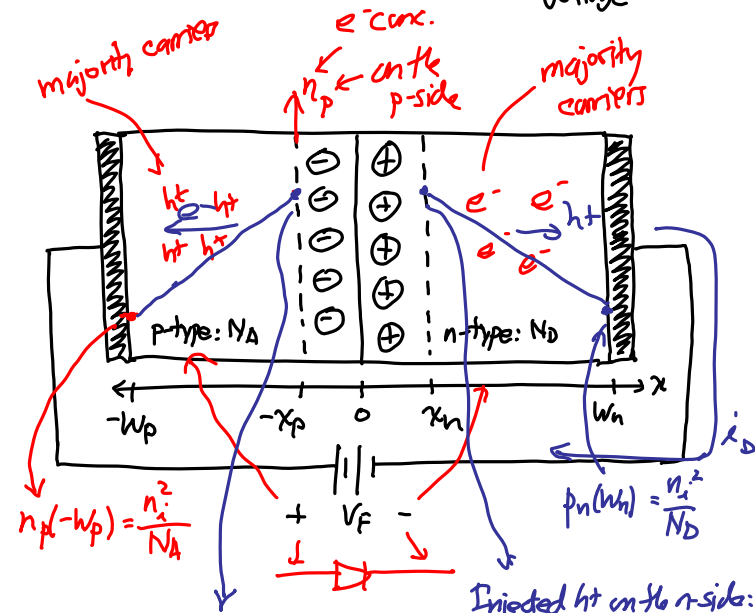 voltage
e⁻ conc.
majority carriers
n_p ← on the
p-side
majority
carriers
⊖ ⊕
h⁺ e⁻ h⁺
⊖ ⊕
e⁻ e⁻
h⁺
h⁺ h⁺
⊖ ⊕
e⁻ e⁻
⊖ ⊕
⊖ ⊕
p-type: N_A
n-type: N_D
-W_p -x_p 0 x_n W_n x
i_D
n_p(-W_p) = n_i²/N_A
+ V_F -
p_n(W_n) = n_i²/N_D
Injected h⁺ on the n-side: